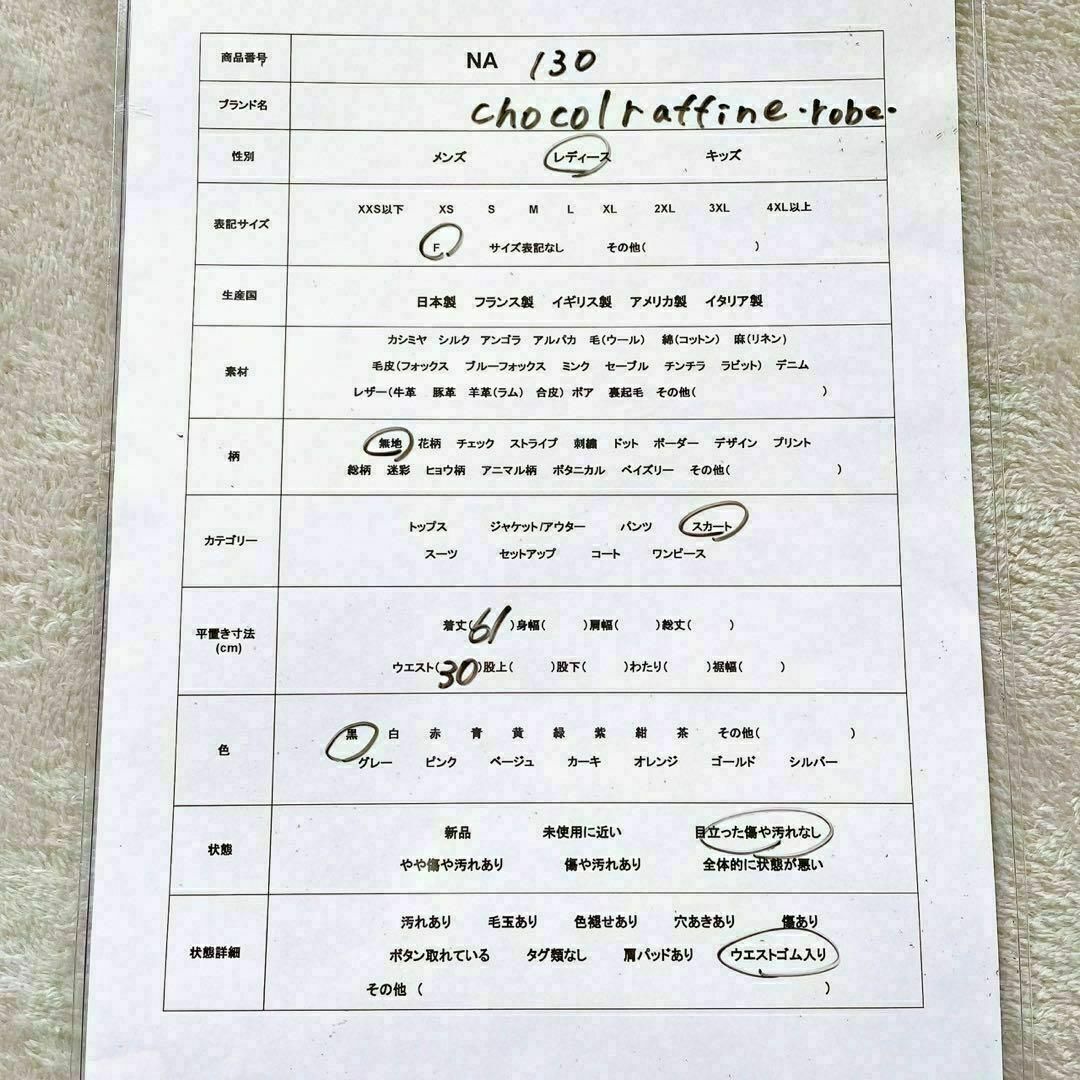 商品番号 NA 130
ブランド名 chocolraffine・robe・
性別 メンズ レディース キッズ
XXS以下 XS S M L XL 2XL 3XL 4XL以上
表記サイズ
F サイズ表記なし その他( )
生産国 日本製 フランス製 イギリス製 アメリカ製 イタリア製
カシミヤ シルク アンゴラ アルパカ 毛(ウール) 綿(コットン) 麻(リネン)
毛皮(フォックス ブルーフォックス ミンク セーブル チンチラ ラビット) デニム
素材
レザー(牛革 豚革 羊革(ラム) 合皮) ボア 裏起毛 その他( )
無地 花柄 チェック ストライプ 刺繍 ドット ボーダー デザイン プリント
柄
総柄 迷彩 ヒョウ柄 アニマル柄 ボタニカル ペイズリー その他( )
トップス ジャケット/アウター パンツ スカート
カテゴリー
スーツ セットアップ コート ワンピース
着丈(61)身幅( )肩幅( )総丈( )
平置き寸法
(cm)
ウエスト(30)股上( )股下( )わたり( )裾幅( )
黒 白 赤 青 黄 緑 紫 紺 茶 その他( )
色
グレー ピンク ベージュ カーキ オレンジ ゴールド シルバー
新品 未使用に近い 目立った傷や汚れなし
状態
やや傷や汚れあり 傷や汚れあり 全体的に状態が悪い
汚れあり 毛玉あり 色褪せあり 穴あきあり 傷あり
状態詳細 ボタン取れている タグ類なし 肩パッドあり ウエストゴム入り
その他 ( )